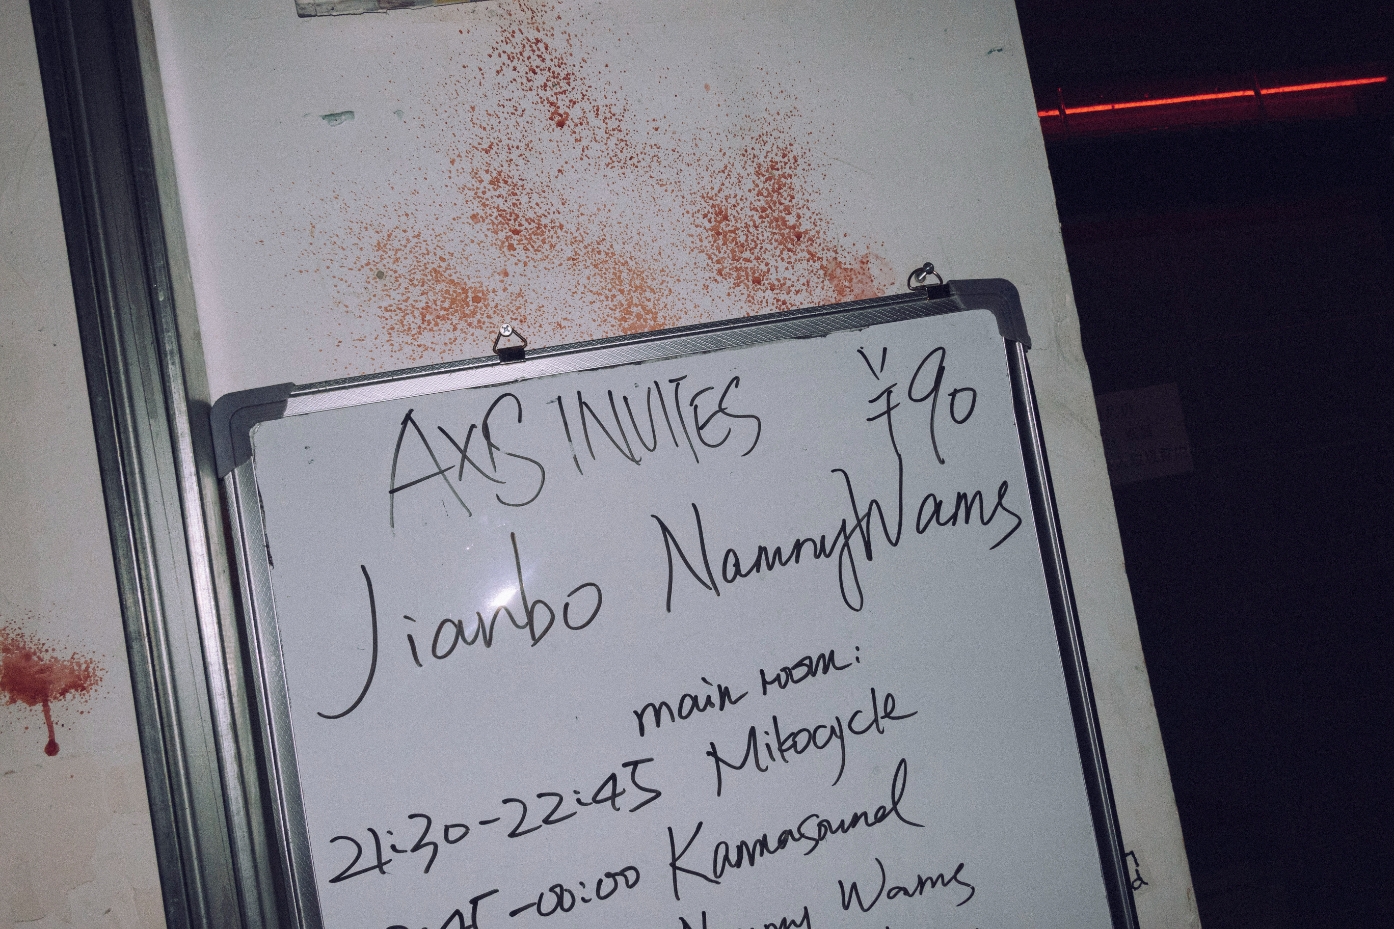 AXIS INVITES ¥90
Jianbo NannyWams
main room:
21:30-22:45 Mikocycle
:45-00:00 Kamasound
Nanny Wams